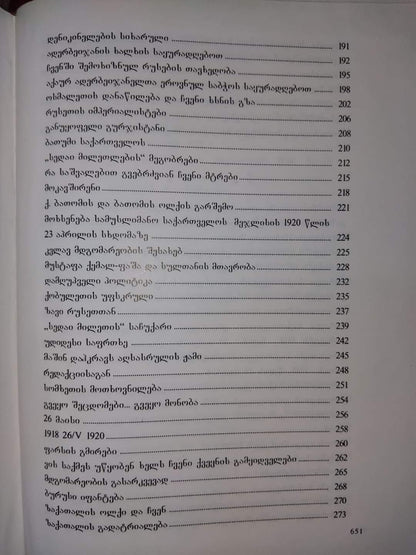 დენიკინელების სიხარული 191
ადერბეიჯანის ხალხის საყურადღებოთ 192
ჩვენში შემოხიზნულ რუსების თავხედობა 195
აქაურ ადერბეიჯანელთა ეროვნულ საბჭოს საყურადღებოთ 198
ოსმალეთის დანაწილება და ჩვენი ხსნის გზა 202
რუსეთის იმპერიალისტები 206
განუყოფელი გურჯისტანი 208
ბათუმი საქართველოს 210
„სედაი მილეთლების“ მეგობრები 212
რა საშვალებით გვებრძვიან ჩვენი მტრები 215
მოკავშირენი 218
ქ. ბათომის და ბათომის ოლქის გარშემო 221
მოხსენება სამუსლიმანო საქართველოს მეჯლისის 1920 წლის
23 აპრილის სხდომაზე 224
კვლავ მდგომარეობის შესახებ 225
მუსტაფა ქემალ-ფაშა და სულთანის მთავრობა 228
დამღუპველი პოლიტიკა 232
ქობულეთის უფსკრული 235
ზავი რუსეთთან 237
„სედაი მილეთის“ საჩუქარი 239
უდიდესი საფრთხე 242
მაშინ დაჰკრავს აღსასრულის ჟამი 245
რედაქციისაგან 248
სომხეთის მოთხოვნილება 251
გვეყო შეცდომები... გვეყო მონობა 254
26 მაისი 256
1918 26/V 1920 258
ფარსის გმირები 260
ვის საქმეს უწყობენ ხელს ჩვენი ქვეყნის გამყიდველები 262
მდგომარეობის გასარკვევად 265
ბურუსი იფანტება 268
ზაქათალის ოლქი და ჩვენ 270
ზაქათალის გადატრიალება 273
651